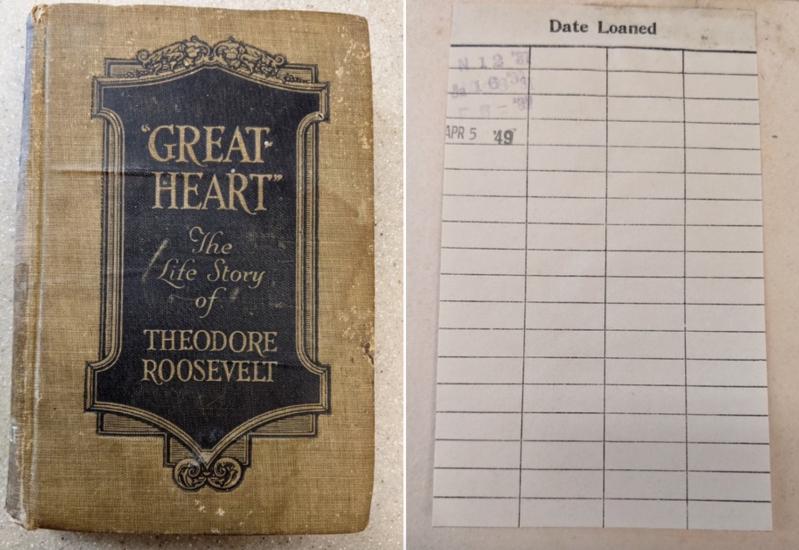 "GREAT-
HEART"
The
Life Story
of
THEODORE
ROOSEVELT
Date Loaned
APR 5 '49